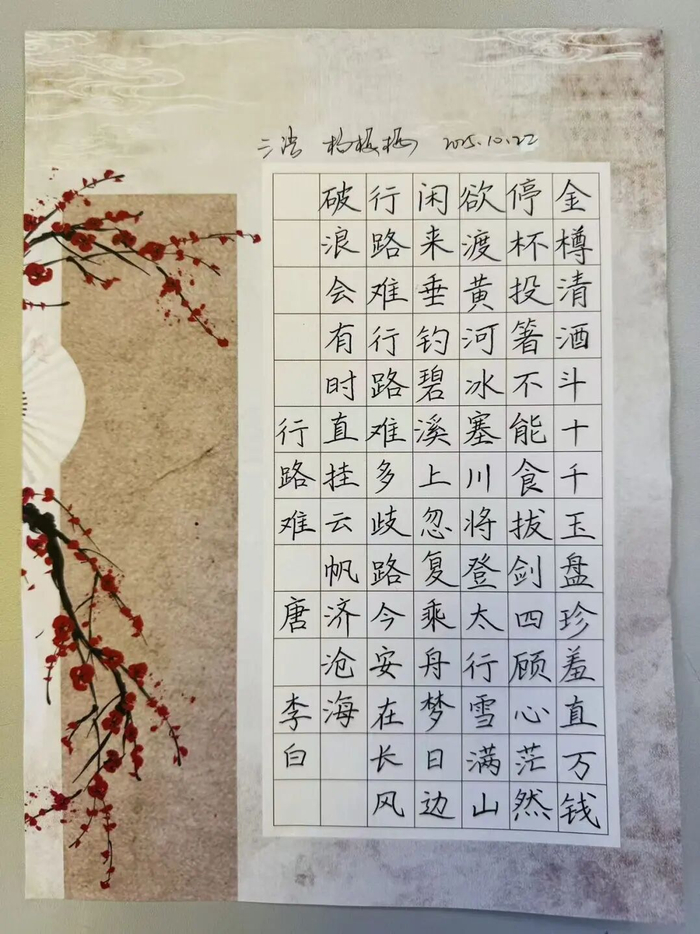 2025.10.22
金樽清酒斗十千玉盘珍羞直万钱
停杯投箸不能食拔剑四顾心茫然
欲渡黄河冰塞川将登太行雪满山
闲来垂钓碧溪上忽复乘舟梦日边
行路难行路难多歧路今安在长风
破浪会有时直挂云帆济沧海
行路难 唐 李白